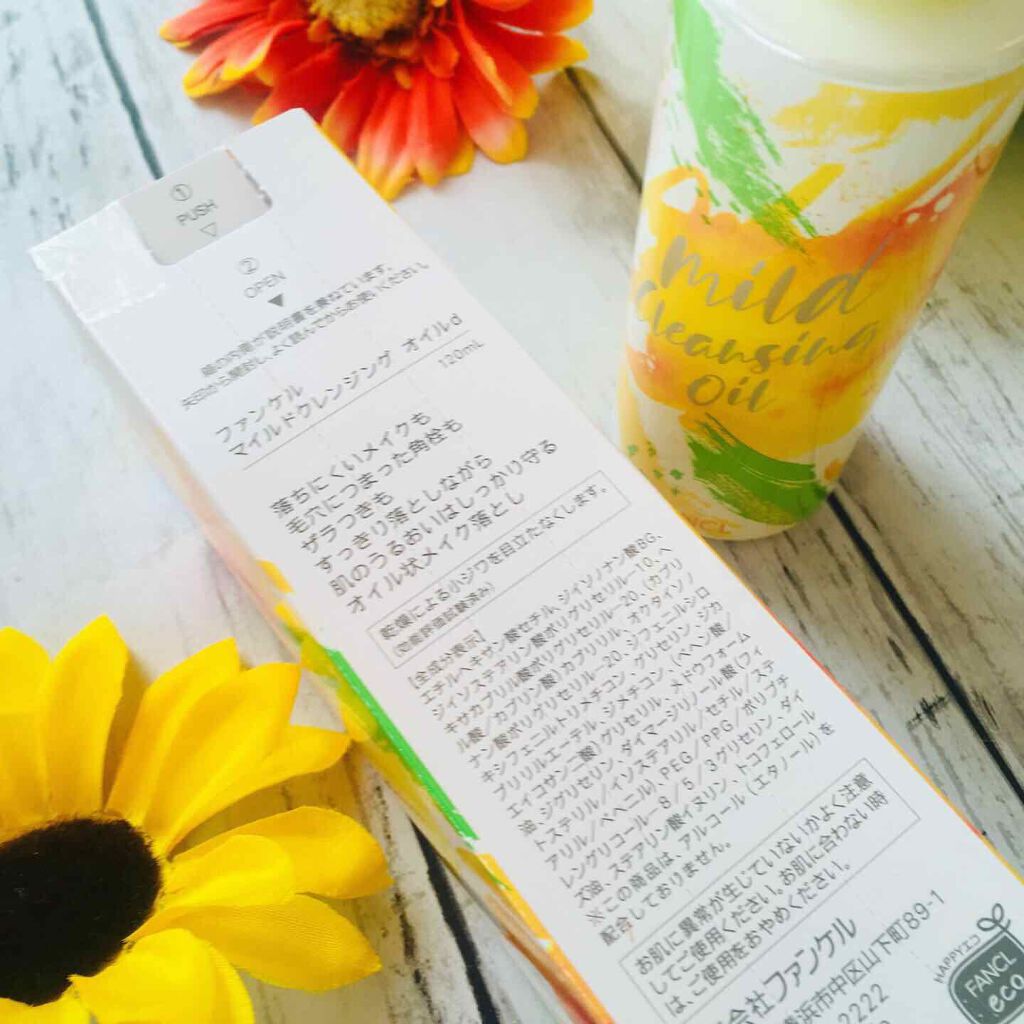 ①
PUSH
②
OPEN
箱の内場が説明書を兼ねています。
矢印から開封し、よく読んでからお使いください。
ファンケル
マイルドクレンジング オイルd
120mL
落ちにくいメイクも
毛穴につまった角栓も
ザラつきも
すっきり落としながら
肌のうるおいはしっかり守る
オイル状メイク落とし
乾燥による小ジワを目立たなくします。
(効能評価試験済み)
[全成分表示]
エチルヘキサン酸セチル、ジイソノナン酸BG、
ジイソステアリン酸ポリグリセリル-10、ヘ
キサカプリル酸ポリグリセリル-20、(カプリ
ル酸/カプリン酸)カプリリル、オクタイソノ
ナン酸ポリグリセリル-20、ジフェニルシロ
キシフェニルトリメチコン、グリセリン、ジカ
プリリルエーテル、ジメチコン、(ベヘン酸/
エイコサン二酸)グリセリル、メドウフォーム
油、ジグリセリン、ダイマージリノール酸(フィ
トステリル/イソステアリル/セチル/ステ
アリル/ベヘニル)、PEG/PPG/ポリブチ
レングリコール-8/5/3グリセリン、ダイ
ズ油、ステアリン酸イヌリン、トコフェロール
※この商品は、アルコール(エタノール)を
配合しておりません。
お肌に異常が生じていないかよく注意
してご使用ください。お肌に合わない時
は、ご使用をおやめください。
会社ファンケル
浜市中区山下町89-1
2222
HAPPYエコ
FANCL
eco
Mild
Cleansing
Oil
FANCL